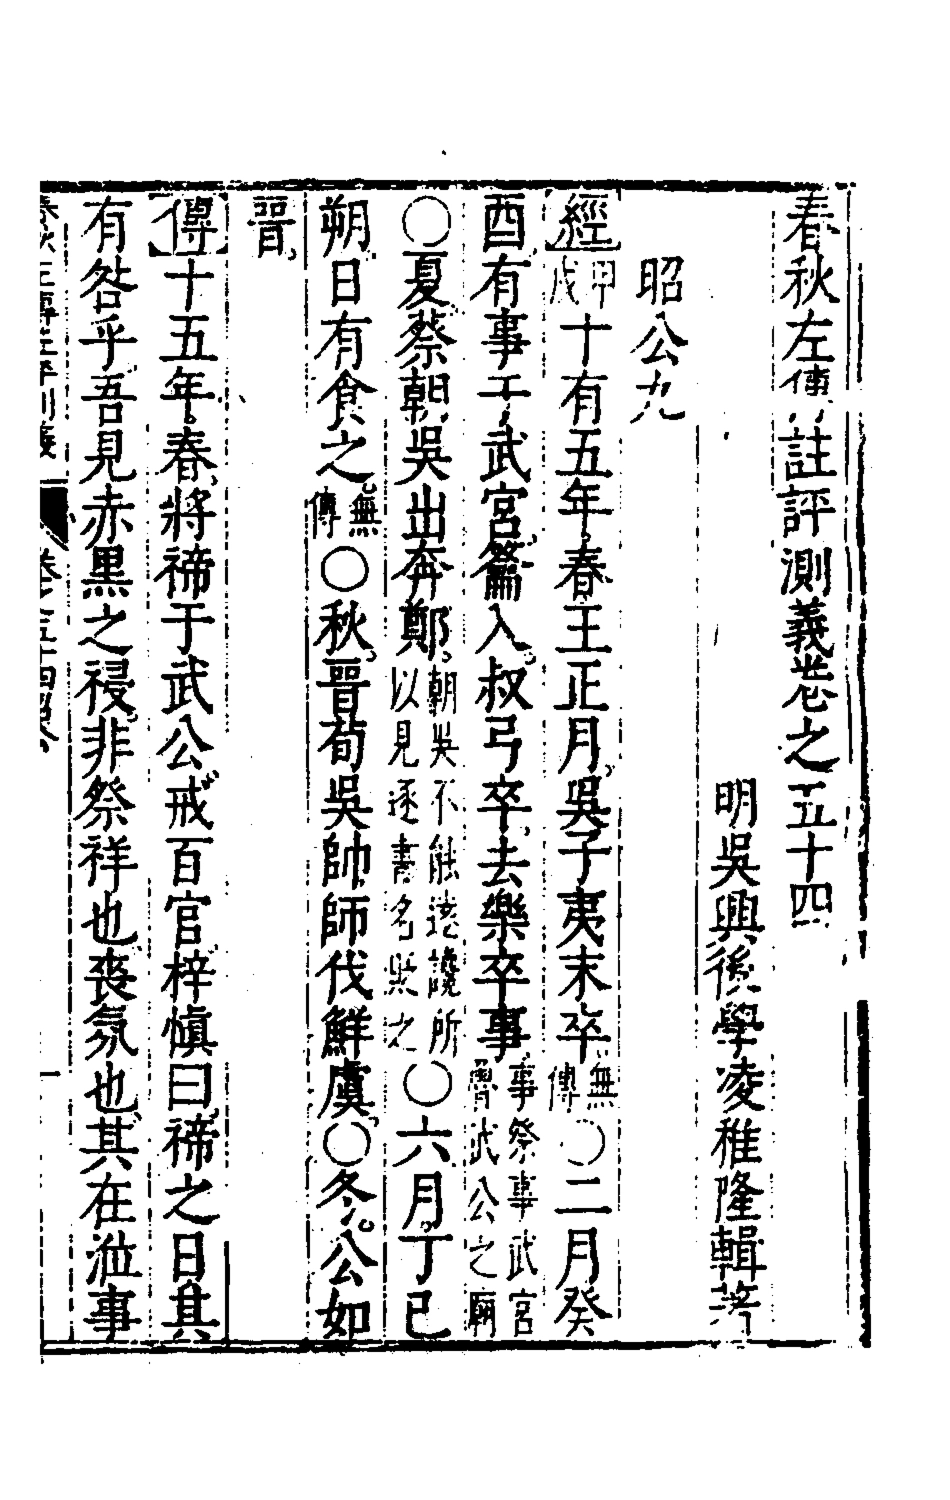 春秋左傳註評測義卷之五十四
明吳興後學凌稚隆輯著
昭公九
經甲戌十有五年春王正月吳子夷末卒無傳○二月癸
酉有事于武宮籥入叔弓卒去樂卒事事祭事武宮魯武公之廟
○夏蔡朝吳出奔鄭朝吳不能遠讒所以見逐書名罪之○六月丁巳
朔日有食之無傳○秋晉荀吳帥師伐鮮虞○冬公如
晉
傳十五年春將禘于武公戒百官梓慎曰禘之日其
有咎乎吾見赤黑之祲非祭祥也喪氛也其在涖事
春秋左傳註評測義 卷之五十四昭公 一